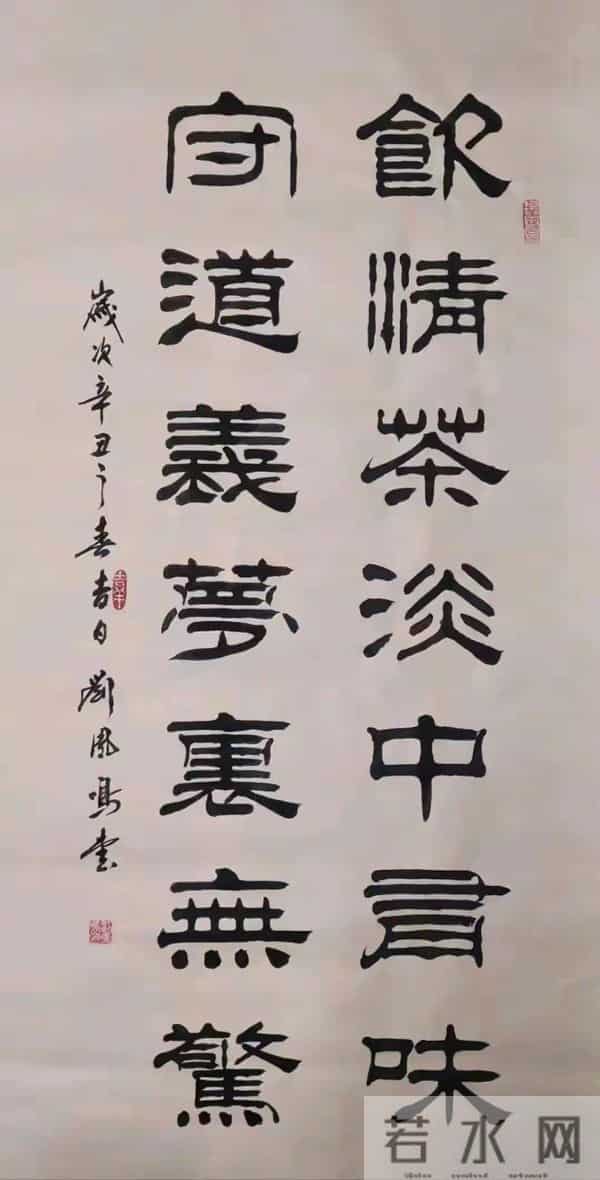 飲清茶淡中有味
守道義夢裏無驚
歲次辛丑之春吉日劉鳳鳴書
若水网